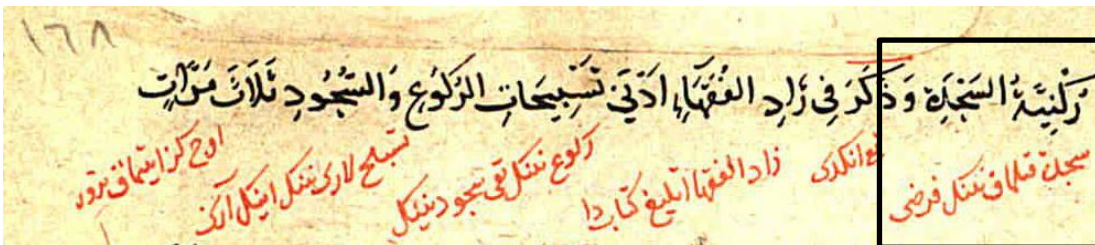 ١٦٨
رُكْنِيَّةُ السَّجْدَةِ وَذُكِرَ فِي زَادِ الفُقَهَاءِ اَدْنَى تَسْبِيحَاتِ الرُّكُوعِ وَالسُّجُودِ ثَلَاثَ مَرَّاتٍ
سجدة قلماق ننكل فرضى زاد الفقها اتليغ كتابدا ركوع ننكل تقى سجود ننكل تسبيح لارى ننكل اوج كز ايتماق ترور